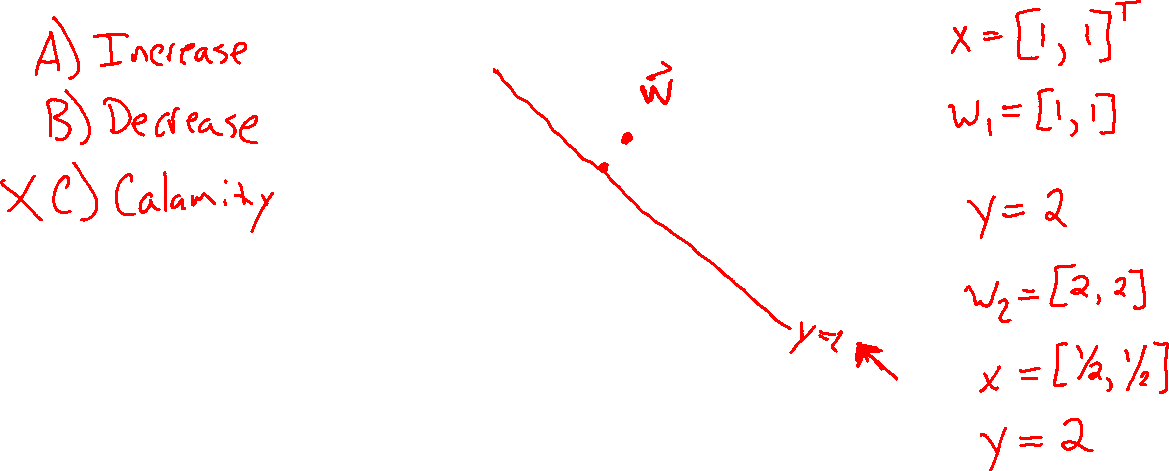 A) Increase
B) Decrease
X C) Calamity
w⃗
y=2
x = [1, 1]ᵀ
w₁ = [1, 1]
y = 2
w₂ = [2, 2]
x = [½, ½]
y = 2